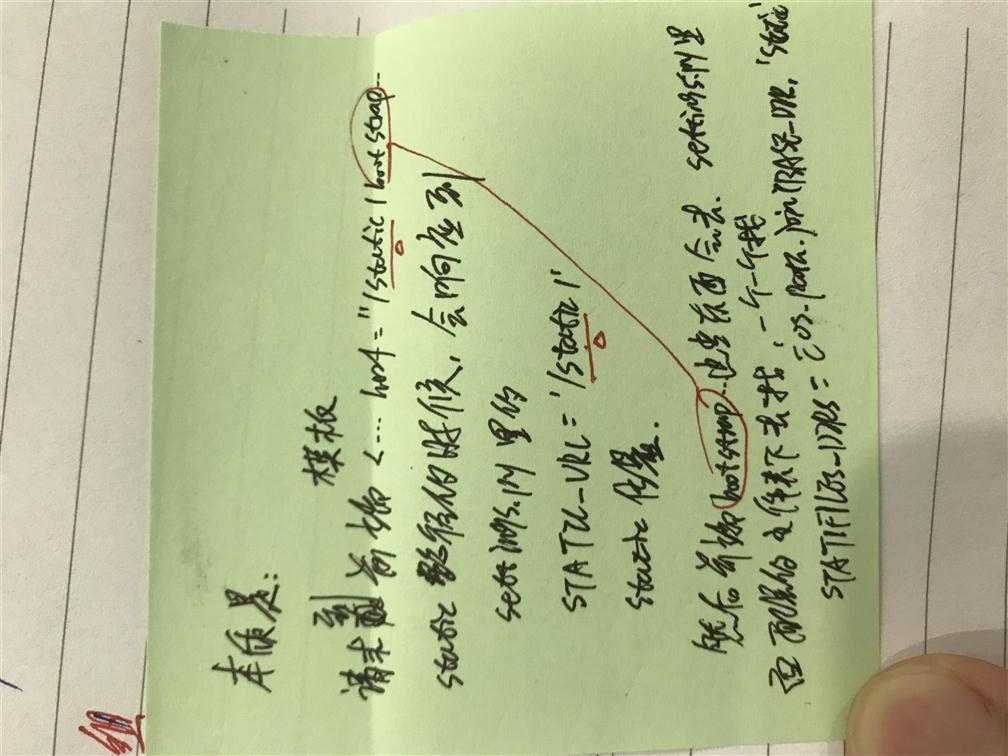 本质是:
模板
请求到前端 <... href = "/static/bootstrap...
static 路径的时候, 会响应到
settings.py 里的
STATIC_URL = '/static/'
static 位置.
然后前端 bootstrap... 这些东西会去. settings.py 里
面 配置的文件夹下去找, 一个一个找
STATIFILES_DIRS = [os.path.join(BASE_DIR, 'static'